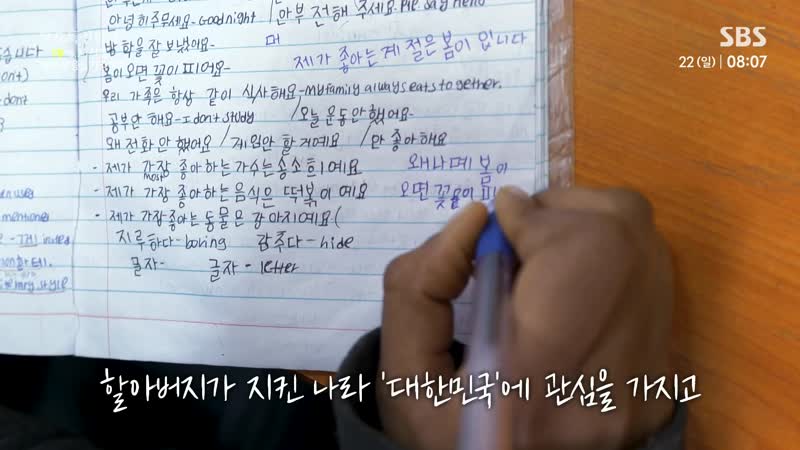 안녕히 주무세요 - Good night / 안부 전해 주세요. Ple say Hello
방학을 잘 보냈어요 -
제가 좋아는 계절은 봄이 입니다
봄이 오면 꽃이 피어요 -
우리 가족은 항상 같이 식사해요 - My family always eats together.
공부 안 해요 - I don't study / 오늘 운동 안 했어요 -
왜 전화 안 했어요 / 게임 안 할 거예요 / 안 좋아해요
- 제가 가장 좋아하는 가수는 송소희 예요
most
왜냐면 봄이
- 제가 가장 좋아하는 음식은 떡볶이 예요
오면 꽃이 피
- 제가 가장 좋아는 동물은 강아지예요 (
지루하다 - boring 감추다 - hide
글자 - 글자 - letter
SBS
22(일) | 08:07
할아버지가 지킨 나라 '대한민국'에 관심을 가지고